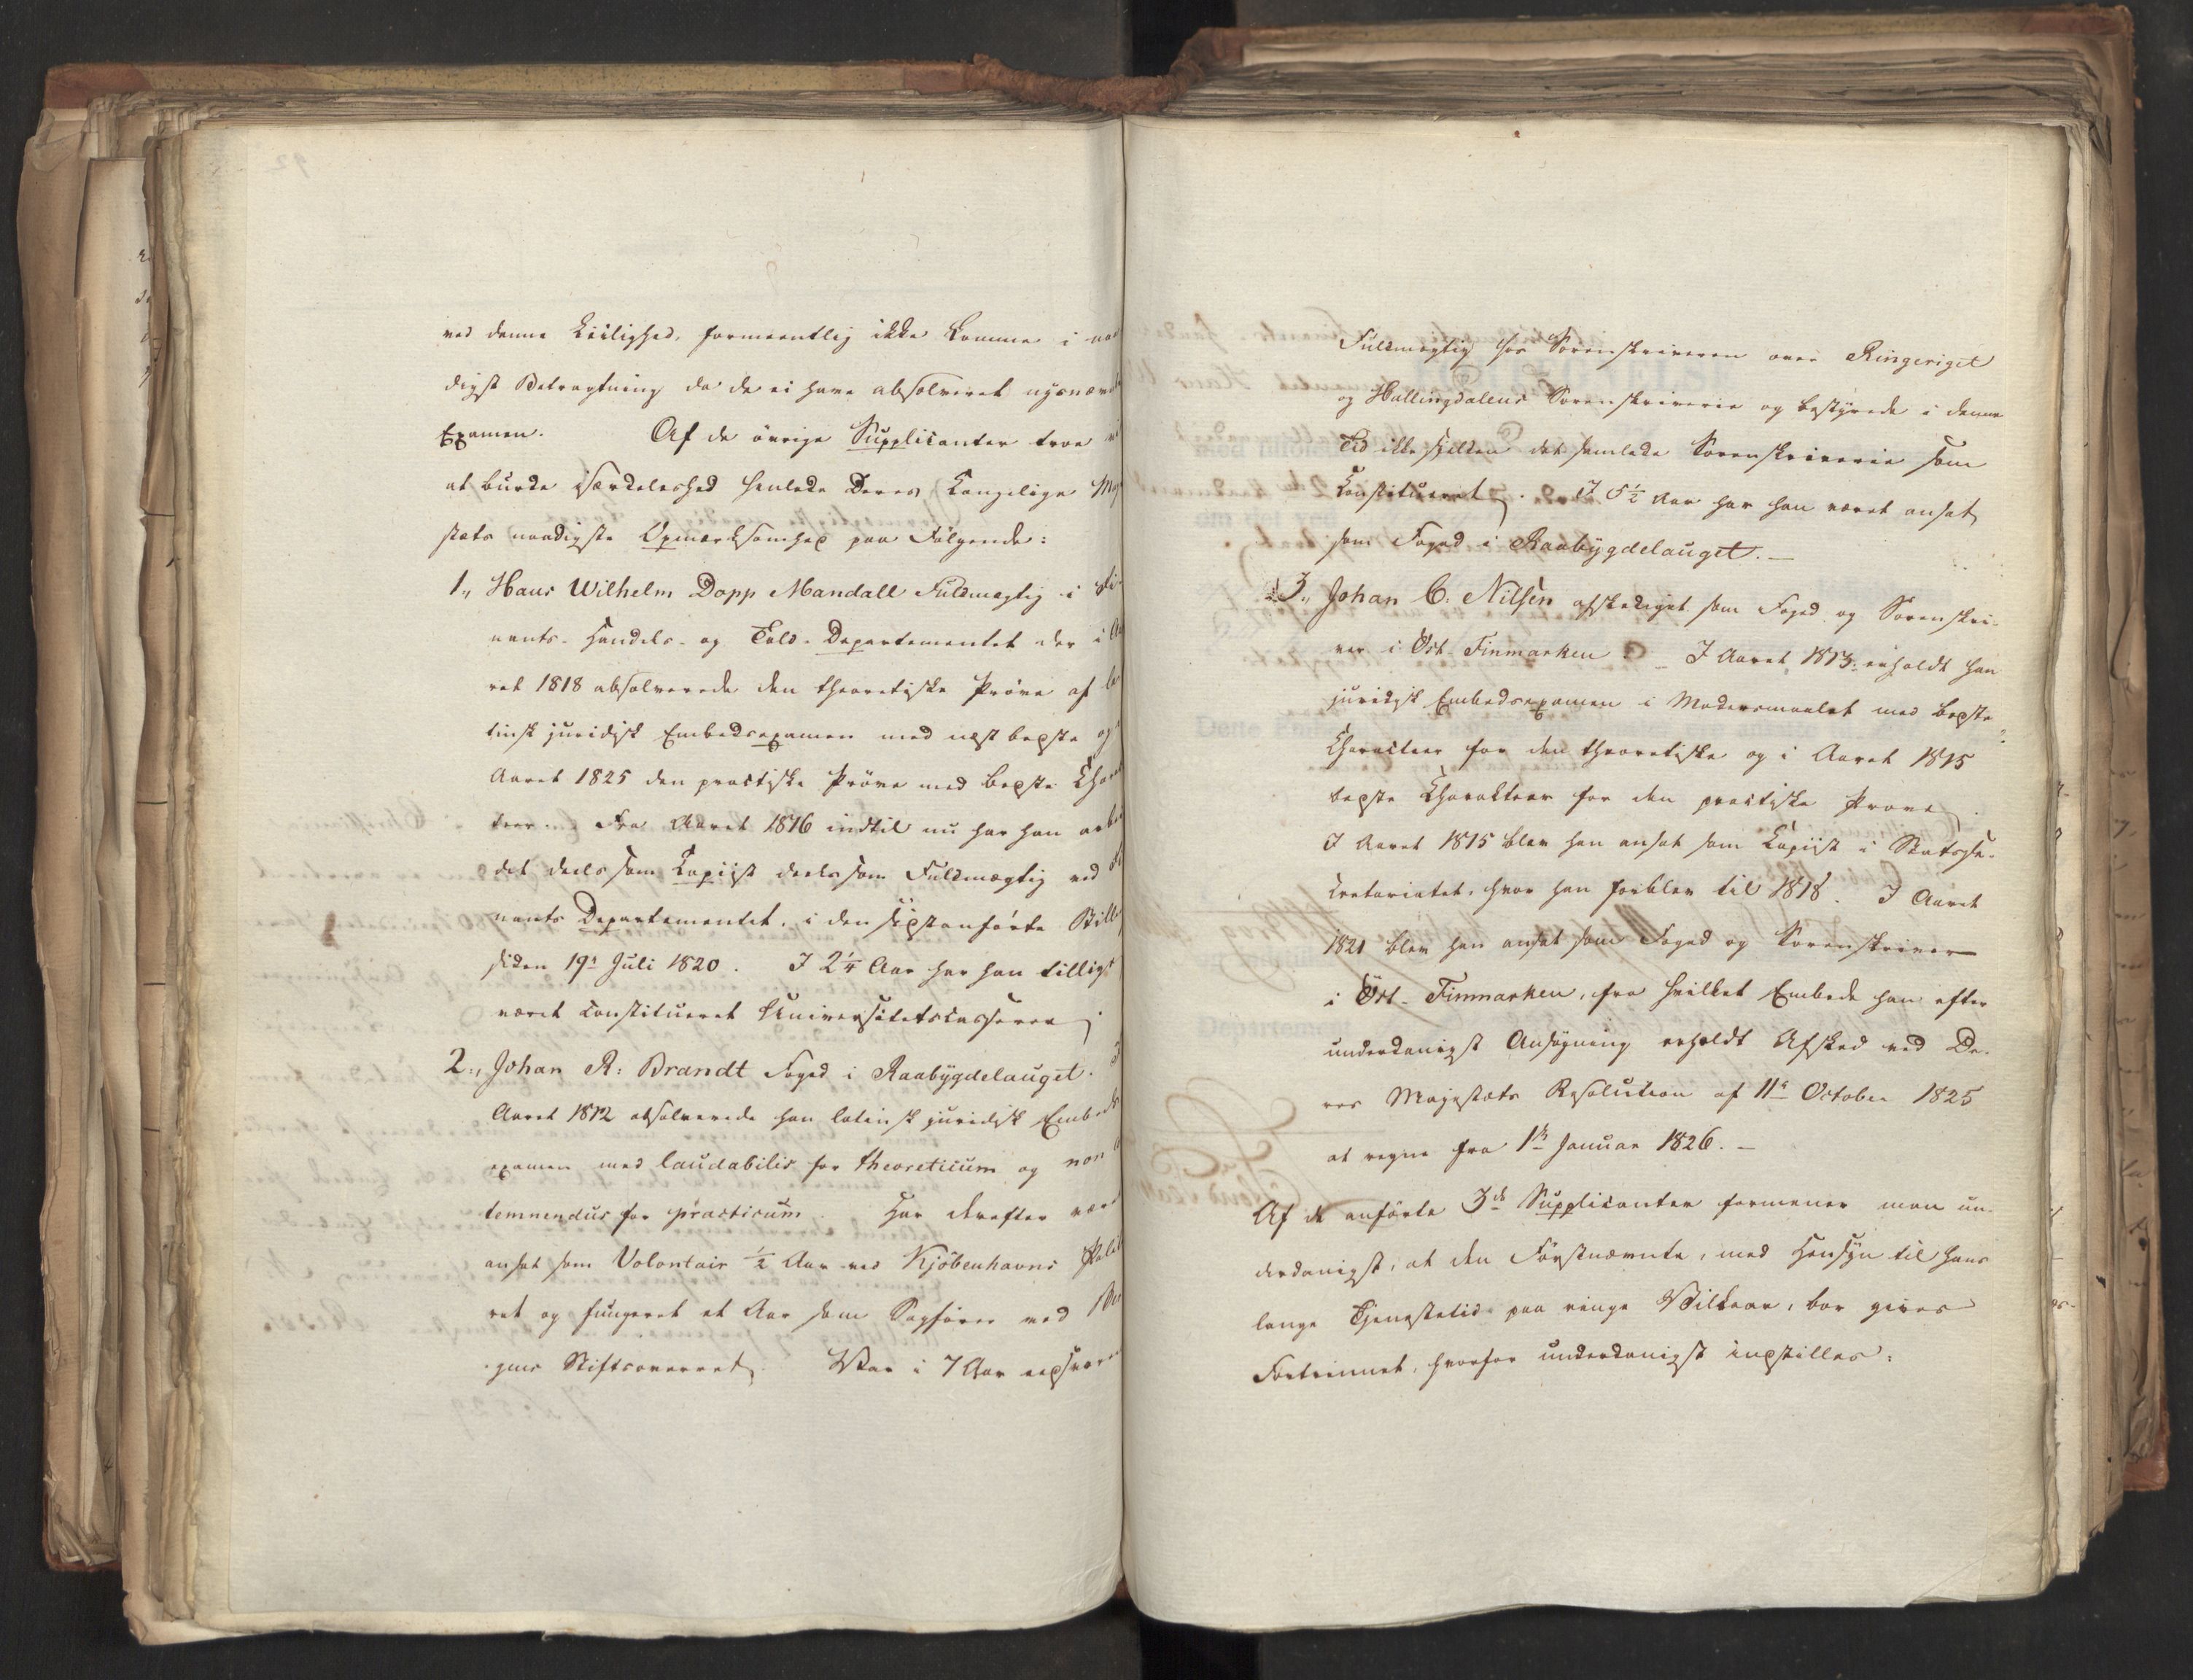 ved denne Leilighed, formeentlig ikke komme i naa
digst Betragtning da de ei have absolveret nysnævnte
Examen. Af de övrige Supplicanter troe vi
at burde særdeleshed henlede Deres Kongelige Maj
stæts naadigste Opmærksomhed paa Følgende:
1., Hans Wilhelm Dopp Mandall Fuldmægtig i Fi
nants- Handels- og Told-Departementet der i Aa
ret 1818 absolverede den theoretiske Pröve af la
tinsk juridisk Embedsexamen med næst bedste og i
Aaret 1825 den practiske Pröve med bedste Charac
teer. Fra Aaret 1816 indtil nu har han arbei
det deels som Kopiist deels som Fuldmægtig ved Fi
nants Departementet, i den sidstanførte Still
siden 19de Juli 1820. I 2¼ Aar har han tilligst
været constitueret Universitetscasserer
2., Johan R: Brandt Foged i Raabygdelauget. I
Aaret 1812 absolverede han latinsk juridisk Embeds
examen med laudabilis for theoreticum og non con
temnendus for practicum. Har derefter været
ansat som Volontair ½ Aar ved Kjöbenhavns Polit
ret og fungeret et Aar som Sagfører ved Ber
gens Stiftsoverret. Var i 7 Aar eedsvoren
Fuldmægtig hos Sorenskriveren over Ringeriget
og Hallingdalens Sorenskriverie og bestyrede i denne
Tid ikke sjelden det samlede Sorenskriverie som
Constitueret. I 5½ Aar har han været ansat
som Foged i Raabygdelauget.
3., Johan C. Nilsen afskediget som Foged og Sorenskri-
ver i Öst-Finmarken. I Aaret 1813 erholdt han
juridisk Embedsexamen i Modersmaalet med bedste
Characteer for den theoretiske og i Aaret 1815
bedste Charakteer for den practiske Prøve.
I Aaret 1815 blev han ansat som Copiist i Statsse-
cretariatet, hvor han forblev til 1818. I Aaret
1821 blev han ansat som Foged og Sorenskriver
i Öst-Finmarken, fra hvilket Embede han efter
underdanigst Ansögning erholdt Afsked ved De-
res Majestæts Resolution af 11te October 1825
at regne fra 1ste Januar 1826.
Af de anførte 3de Supplicanter formener man un-
derdanigst, at den Førstnævnte, med Hensyn til hans
lange Tjenestetid paa ringe Vilkaar, bør gives
Fortrinnet, hvorfor underdanigst indstilles: